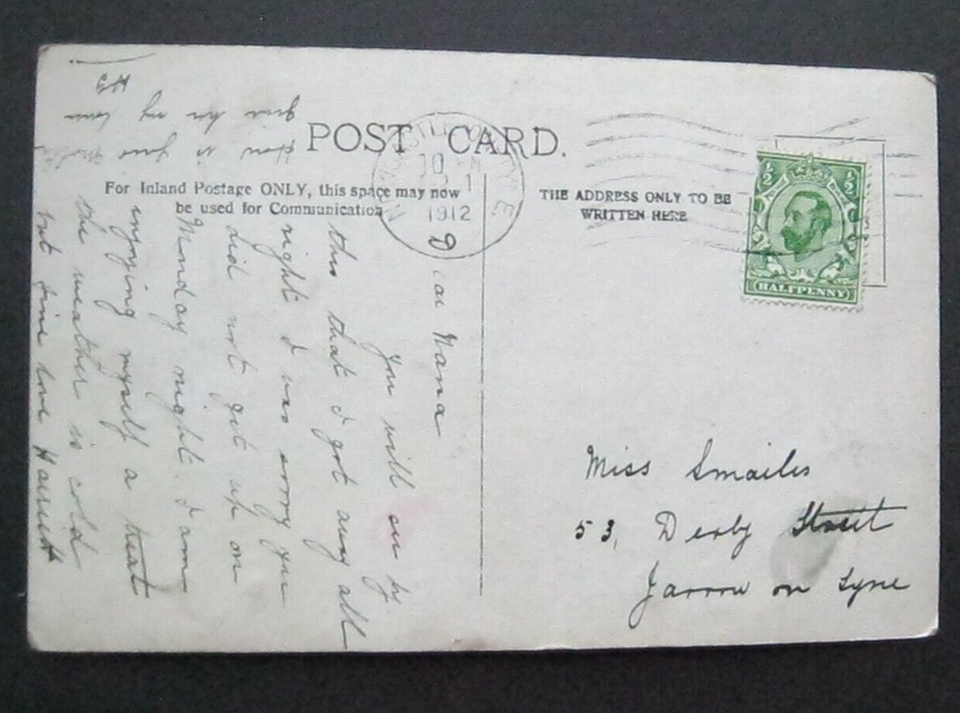 POST CARD.
For Inland Postage ONLY, this space may now
be used for Communication
THE ADDRESS ONLY TO BE
WRITTEN HERE
10
1912
½ ½
HALFPENNY
Dear Nana
You will see by
this that I got away all
right I was sorry you
did not get up on
Monday night. I am
enjoying myself a treat
the weather is cold
but fine love Harriett
How is your
give her my love
Miss Smailes
53, Derby Street
Jarrow on Tyne